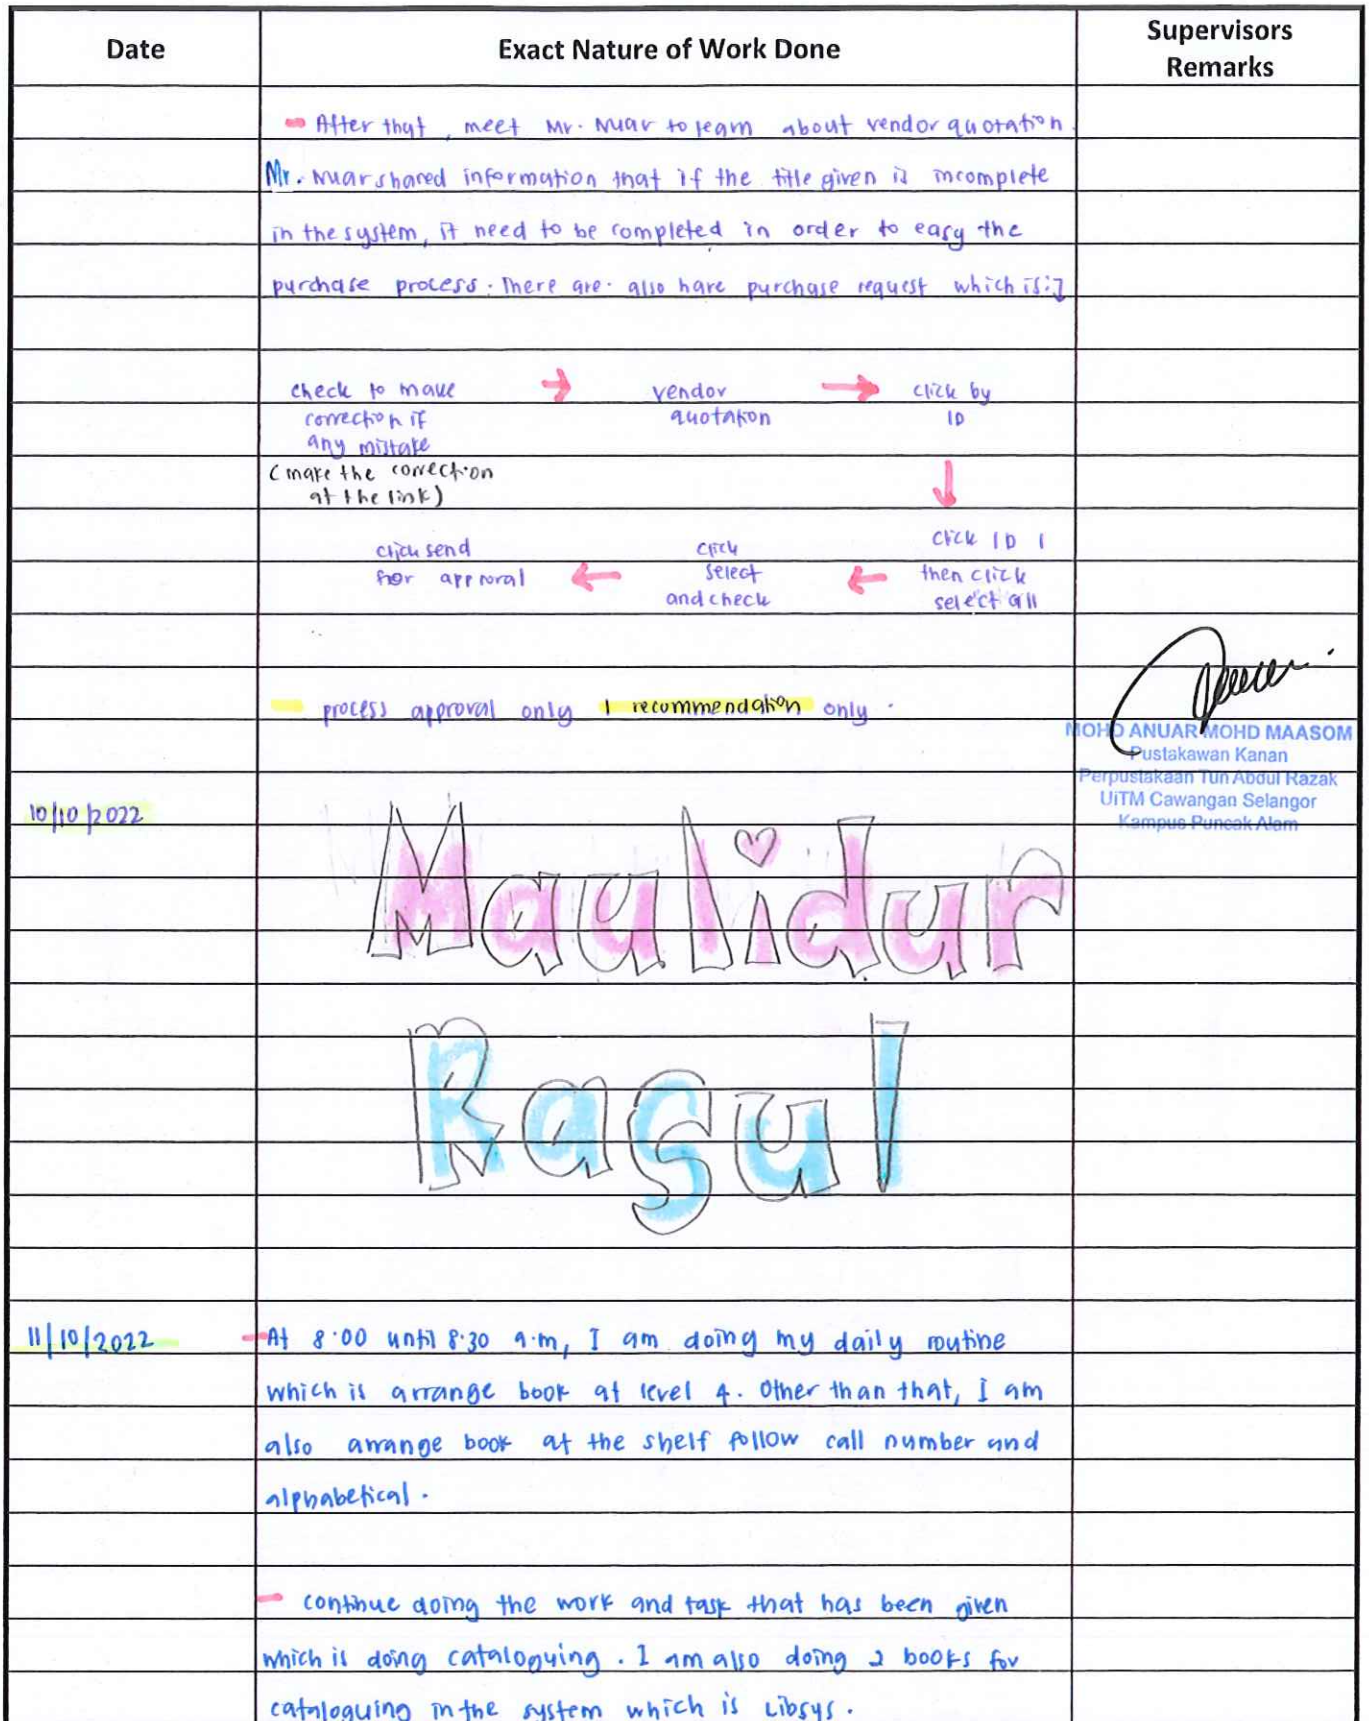 Date
Exact Nature of Work Done
Supervisors
Remarks
After that, meet Mr. Nuar to learn about vendor quotation
Mr. Nuar shared information that if the title given is incomplete
in the system, it need to be completed in order to easy the
purchase process. There are. also have purchase request which is:
check to make
correction if
any mistake
(make the correction
at the link)
vendor
quotation
click by
ID
click ID 1
then click
select all
click
select
and check
click send
for approval
process approval only 1 recommendation only.
MOHD ANUAR MOHD MAASOM
Pustakawan Kanan
Perpustakaan Tun Abdul Razak
UiTM Cawangan Selangor
Kampus Puncak Alam
10/10/2022
Maulidur
Rasul
11/10/2022
At 8.00 until 8.30 a.m, I am doing my daily routine
which is arrange book at level 4. Other than that, I am
also arrange book at the shelf follow call number and
alphabetical.
continue doing the work and task that has been given
which is doing cataloguing. I am also doing 2 books for
cataloguing in the system which is Libsys.